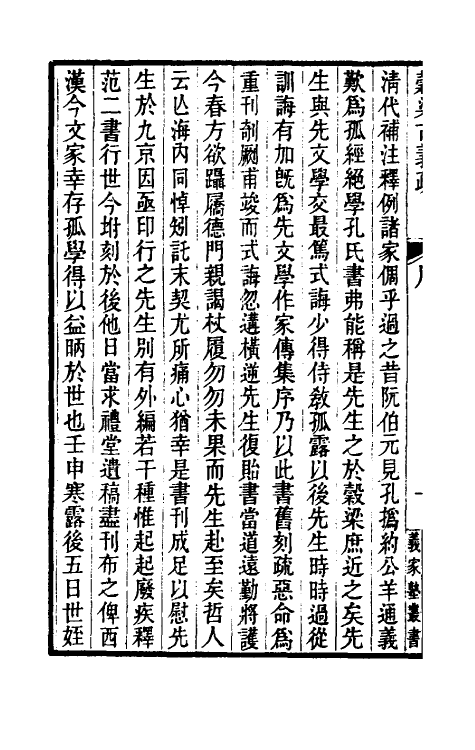 穀梁古義疏 序 一 義家塾叢書
清代補注釋例諸家偭乎過之昔阮伯元見孔㧑約公羊通義
歎爲孤經絕學孔氏書弗能稱是先生之於穀梁庶近之矣先
生與先文學交最篤式誨少得侍敎孤露以後先生時時過從
訓誨有加旣爲先文學作家傳集序乃以此書舊刻疏惡命爲
重刊剞劂甫竣而式誨忽遘橫逆先生復貽書當道遠勤將護
今春方欲躡屩德門親謁杖履勿勿未果而先生赴至矣哲人
云亾海內同悼矧託末契尤所痛心猶幸是書刊成足以慰先
生於九京因亟印行之先生別有外編若干種惟起起廢疾釋
范二書行世今坿刻於後他日當求禮堂遺稿盡刊布之俾西
漢今文家幸存孤學得以益昞於世也壬申寒露後五日世姪